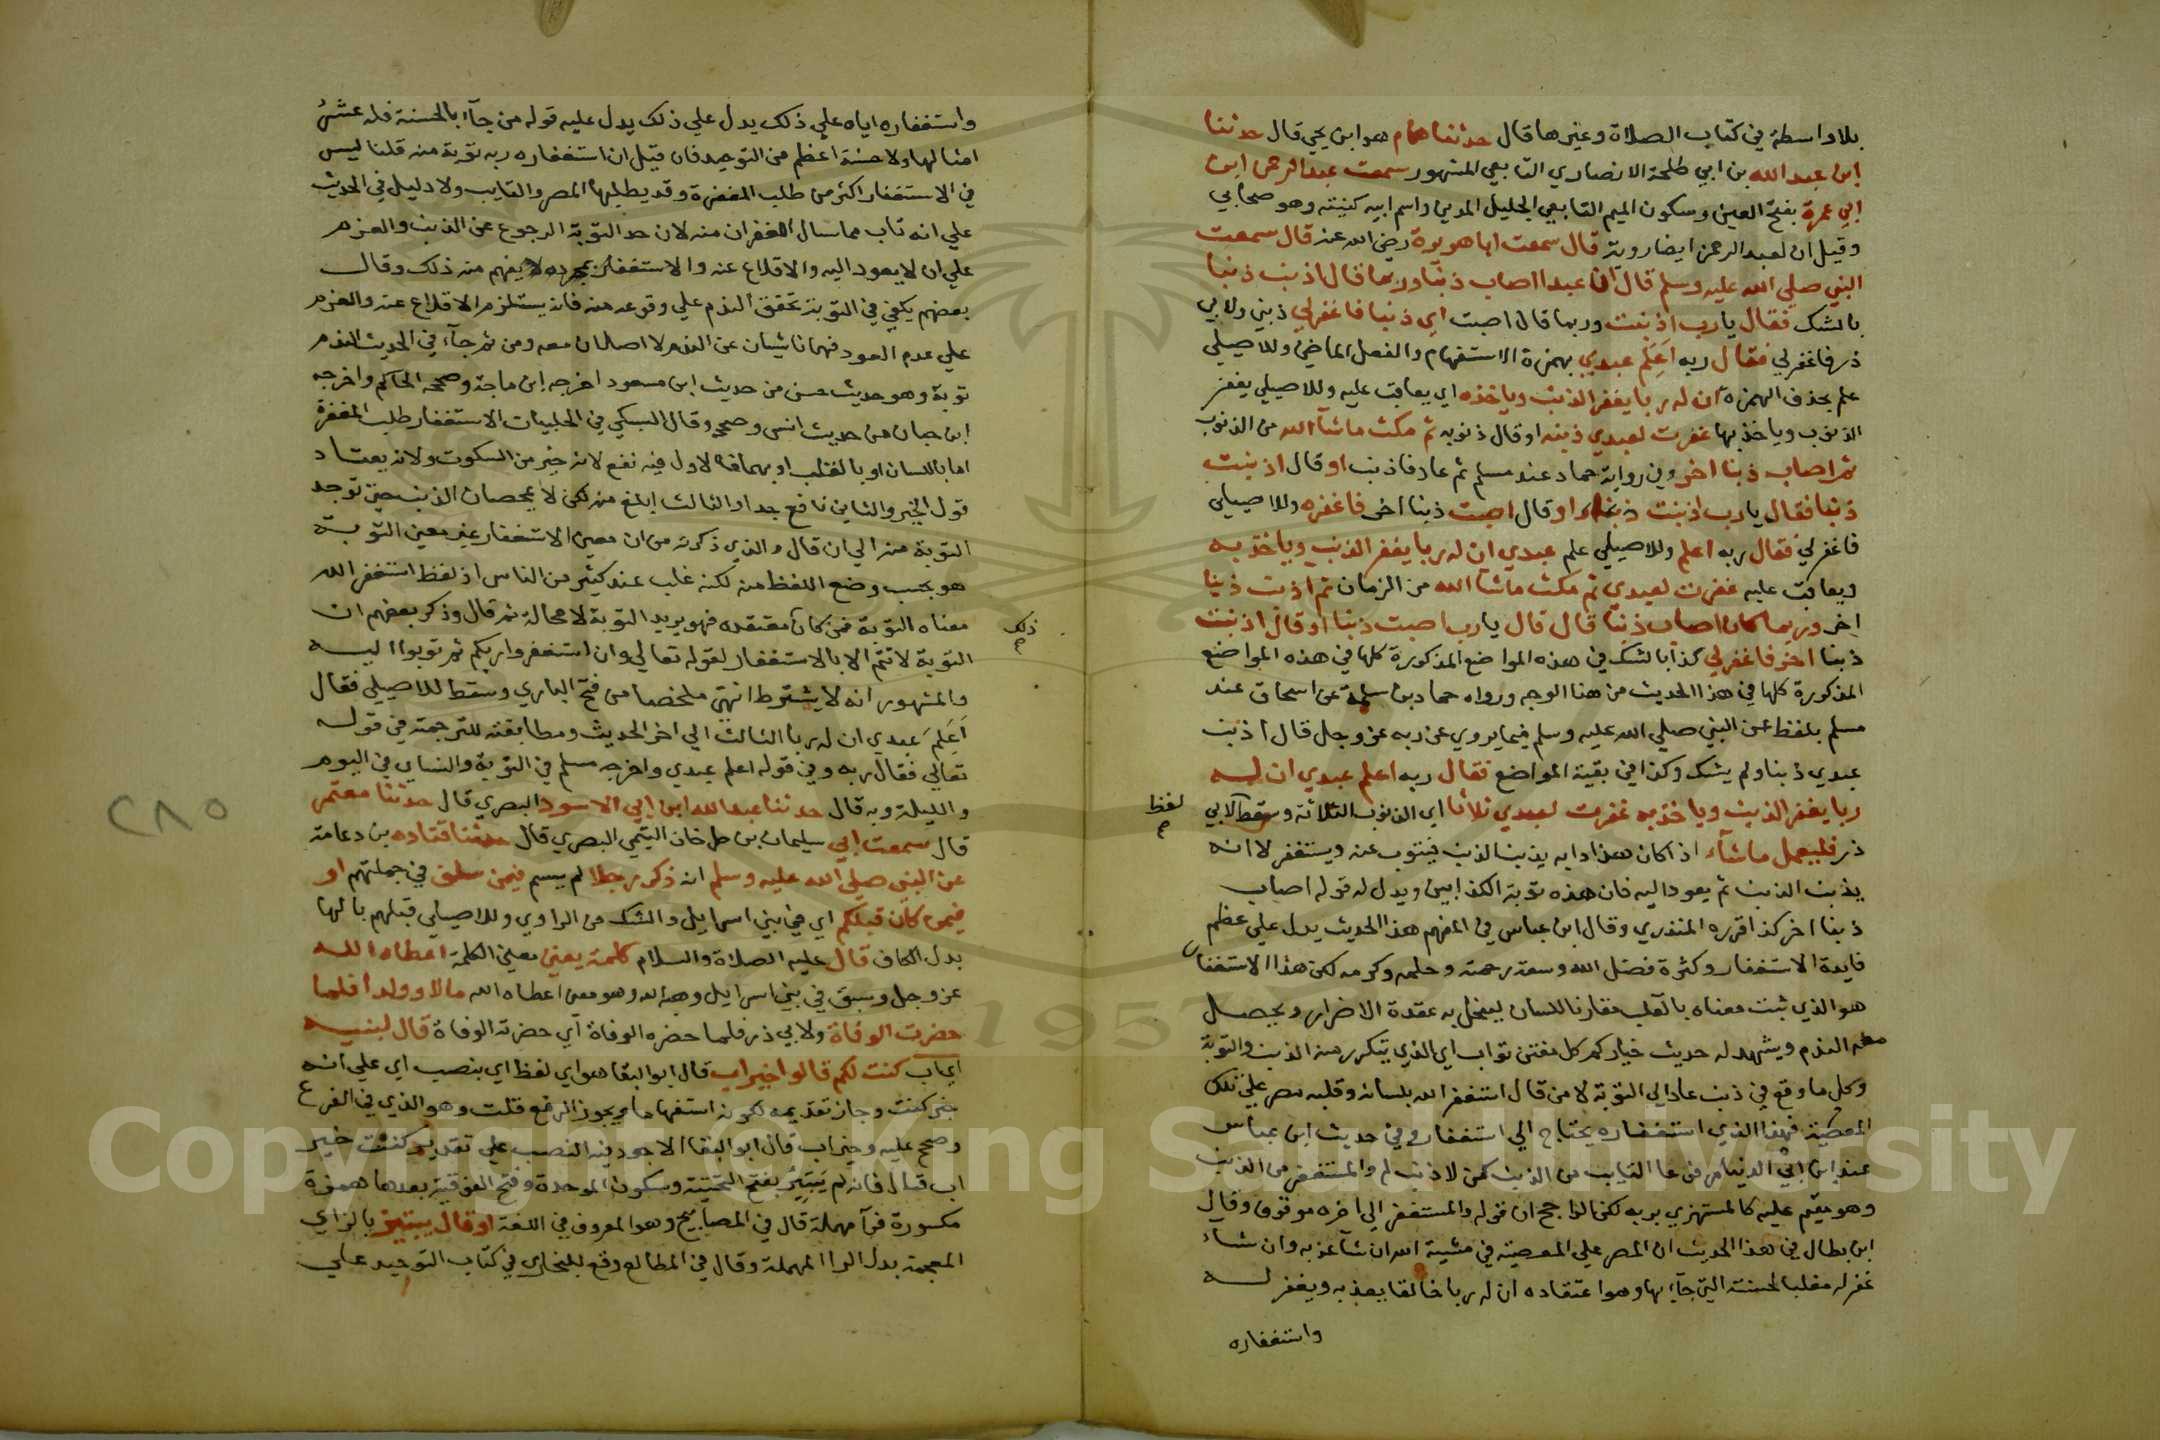 بلا واسطة في كتاب الصلاة وغيرها قال حدثنا همام هو ابن يحي قال حدثنا
ابن عبد الله بن ابي طلحة الانصاري التابعي المشهور سمعت عبد الرحمن ابن
ابي عمرة بفتح العين وسكون الميم التابعي الجليل المدني واسم ابيه كنيته وهو صحابي
وقيل ان لعبد الرحمن ايضا روية قال سمعت ابا هريرة رضي الله عنه قال سمعت
النبي صلي الله عليه وسلم قال ان عبدا اصاب ذنبا وربما قال اذنب ذنبا
بالشك فقال يا رب اذنبت وربما قال اصبت اي ذنبا فاغفر لي ذنبي ولابي
ذر فاغفر لي فقال ربه اَعَلِمَ عبدي بهمزة الاستفهام والفعل الماضي وللاصيلي
علم بحذف الهمزة ان له ربا يغفر الذنب وياخذه اي يعاقب عليه وللاصيلي يغفر
الذنوب وياخذ بها غفرت لعبدي ذنبه او قال ذنوبه ثم مكث ما شآ الله من الذنوب
ثم اصاب ذنبا اخر وفي رواية حماد عند مسلم ثم عاد فاذنب او قال اذنبت
ذنبا فقال يا رب اذنبت ذنبا او قال اصبت ذنبا اخر فاغفره وللاصيلي
فاغفر لي فقال ربه اعلم وللاصيلي علم عبدي ان له ربا يغفر الذنب وياخذ به
ويعاقب عليه غفرت لعبدي ثم مكث ما شآ الله من الزمان ثم اذنب ذنبا
اخر وربما كان اصاب ذنبا قال قال يا رب اصبت ذنبا او قال اذنبت
ذنبا اخر فاغفر لي كذا بالشك في هذه المواضع المذكورة كلها في هذه المواضع
المذكورة كلها في هذا الحديث من هذا الوجه ورواه حماد بن سلمة عن اسحاق عند
مسلم بلفظ عن النبي صلي الله عليه وسلم فيما يروي عن ربه عز وجل قال اذنب
عبدي ذنبا ولم يشك وكذا في بقية المواضع فقال ربه اعلم عبدي ان له
ربا يغفر الذنب وياخذ به غفرت لعبدي ثلاثا اي الذنوب الثلاثة وسقط لابي
لفظ
ذر فليعمل ما شآء اذا كان هذا دابه يذنب الذنب فيتوب عنه ويستغفر لا انه
يذنب الذنب ثم يعود اليه فان هذه توبة الكذابين ويدل له قوله اصاب
ذنبا اخر كذا قرره المنذري وقال ابن عباس في المفهم هذا الحديث يدل علي عظم
فايدة الاستغفار وكثرة فضل الله وسعة رحمته وحلمه وكرمه لكن هذا الاستغفار
هو الذي ثبت معناه بالقلب مقارنا للسان لينحل به عقدة الاضرار ويحصل
معه الندم ويشهد له حديث خياركم كل مفتن تواب اي الذي يتكرر منه الذنب والتوبة
وكل ما وقع في ذنب عاد الي التوبة لا من قال استغفر الله بلسانه وقلبه مصر علي تلك
المعصية فهذا الذي استغفاره يحتاج الي استغفار وفي حديث ابن عباس
عند ابن ابي الدنيا مرفوعا التايب من الذنب كمن لا ذنب له والمستغفر من الذنب
وهو مقيم عليه كالمستهزي بربه لكن الراجح ان قوله والمستغفر الي اخره موقوف وقال
ابن بطال في هذا الحديث ان المصر علي المعصية في مشية الله ان شآ عذبه وان شاء
غفر له مغلبا لحسنته التي جآء بها وهو اعتقاده ان له ربا خالقا يعذبه ويغفر له
واستغفاره
واستغفاره اياه علي ذلك يدل علي ذلك يدل عليه قوله من جآء بالحسنة فله عشرُ
امثالها ولا حسنة اعظم من التوحيد فان قيل ان استغفاره ربه توبة منه قلنا ليس
في الاستغفار اكثر من طلب المغفرة وقد يطلبها المصر والتايب ولا دليل في الحديث
علي انه تاب مما سال الغفران منه لان حد التوبة الرجوع عن الذنب والعزم
علي ان لا يعود اليه والاقلاع عنه والاستغفار بمجرده لا يفهم منه ذلك وقال
بعضهم يكفي في التوبة تحقق الندم علي وقوعه منه فانه يستلزم الاقلاع عنه والعزم
علي عدم العود فهما ناشيان عن الندم لا اصلان معه ومن ثم جآء في الحديث الندم
توبة وهو حديث حسن من حديث ابن مسعود اخرجه ابن ماجة وصححه الحاكم واخرجه
ابن حبان من حديث انس وصححه وقال السبكي في الحلبيات الاستغفار طلب المغفرة
اما باللسان او بالقلب او بهما فالاول فيه نفع لانه خير من السكوت ولانه يعتاد
قول الخير والثاني نافع جدا والثالث ابلغ منه لكن لا يمحصان الذنب حتي توجد
التوبة منه الي ان قال والذي ذكرته من ان معين الاستغفار غير معين التوبة
هو بحسب وضع اللفظ منه لكنه غلب عند كثير من الناس اذ لفظ استغفر الله
معناه التوبة فمن كان معتقده فهو يريد التوبة لا محالة ثم قال وذكر بعضهم ان
ذلك
التوبة لا تتم الا بالاستغفار لقوله تعالي وان استغفروا ربكم ثم توبوا اليه
والمشهور انه لا يشترط انتهي ملخصا من فتح الباري وسقط للاصيلي فقال
اَعَلِمَ عبدي ان له ربا الثالث الي اخر الحديث ومطابقته للترجمة في قوله
تعالي فقال ربه وفي قوله اعلم عبدي واخرجه مسلم في التوبة والنساي في اليوم
والليلة وبه قال حدثنا عبد الله ابن ابي الاسود البصري قال حدثنا معتمر
٢٨٥
قال سمعت ابي سليمان بن طرخان التيمي البصري قال حدثنا قتاده بن دعامة
عن النبي صلي الله عليه وسلم انه ذكر رجلا لم يسم فيمن سلف في جملتهم او
فيمن كان قبلكم اي في بني اسرايل والشك من الراوي وللاصيلي قبلهم بالها
بدل الكاف قال عليه الصلاة والسلام كلمة يعني معني الكلمة اعطاه الله
عز وجل وسبق في بني اسرايل وهو معني اعطاه الله مالا وولدا فلما
حضرت الوفاة ولابي ذر فلما حضره الوفاة اي حضرته الوفاة قال لبنيه
اي اب كنت لكم قالوا خير اب قال ابو البقا هو اي لفظ اي بنصب اي علي انه
خبر كنت وجاز تقديمه لكونه استفهاما ويجوز الرفع قلت وهو الذي في الفرع
وصحح عليه وخير اب قال ابو البقا الاجود فيه النصب علي تقدير كنت خير
اب قال فانه لم يَبْتَئِرْ بفتح التحتية وسكون الموحدة وفتح الفوقية بعدها همزة
مكسورة فرآ مهملة قال في المصابيح وهو المعروف في اللغة او قال يبتئز بالزاي
المعجمة بدل الرا المهملة وقال في المطالع وقع للبخاري في كتاب التوحيد علي
Copyright © King Saud University
1957